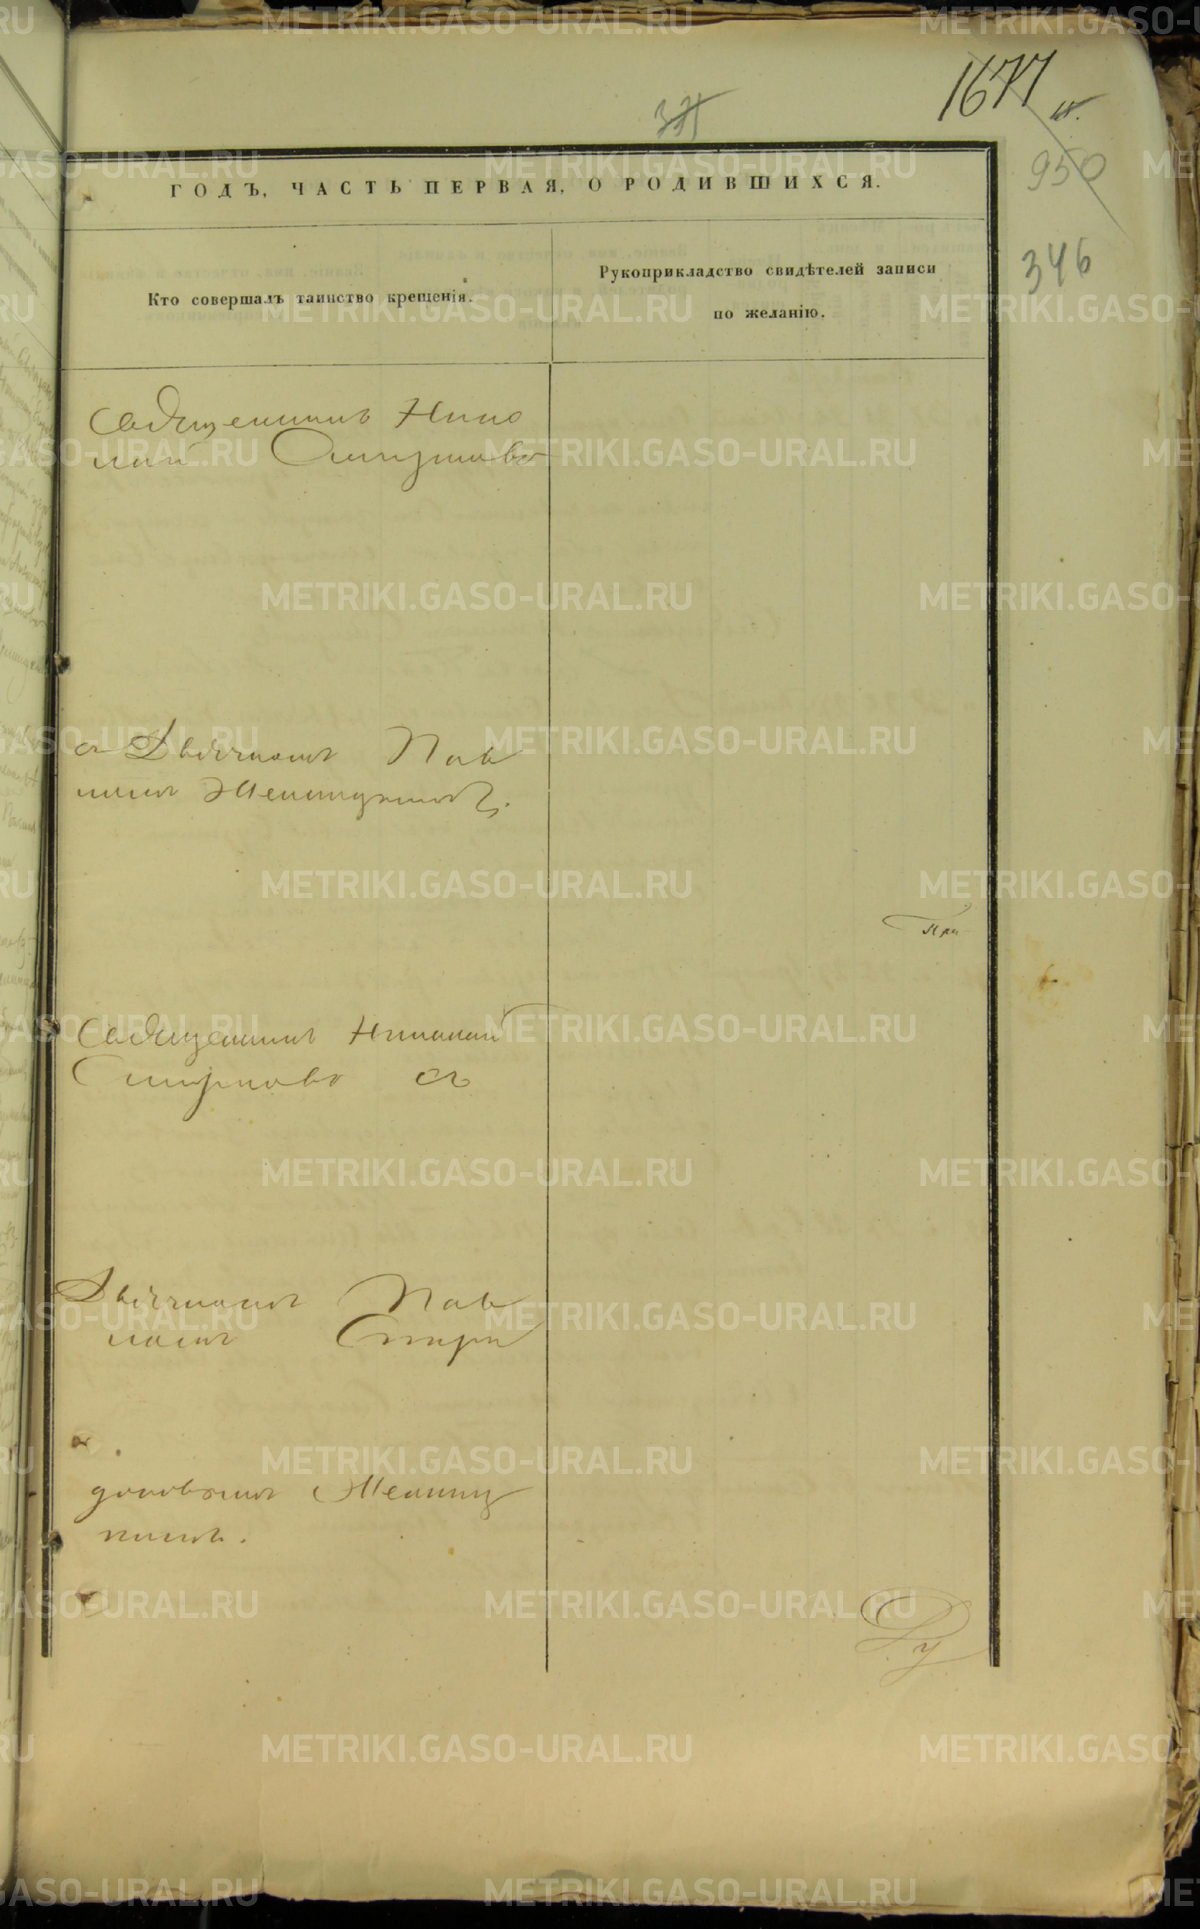 1677
950
346
ГОДЪ, ЧАСТЬ ПЕРВАЯ, О РОДИВШИХСЯ.
Кто совершалъ таинство крещенія.
Рукоприкладство свидѣтелей записи
по желанію.
Священникъ Нико
лай Смирновъ
съ Дьячкомъ Пав
ломъ
При
Священникъ Николай
Смирновъ съ
Дьячкомъ Пав
ломъ
METRIKI.GASO-URAL.RU